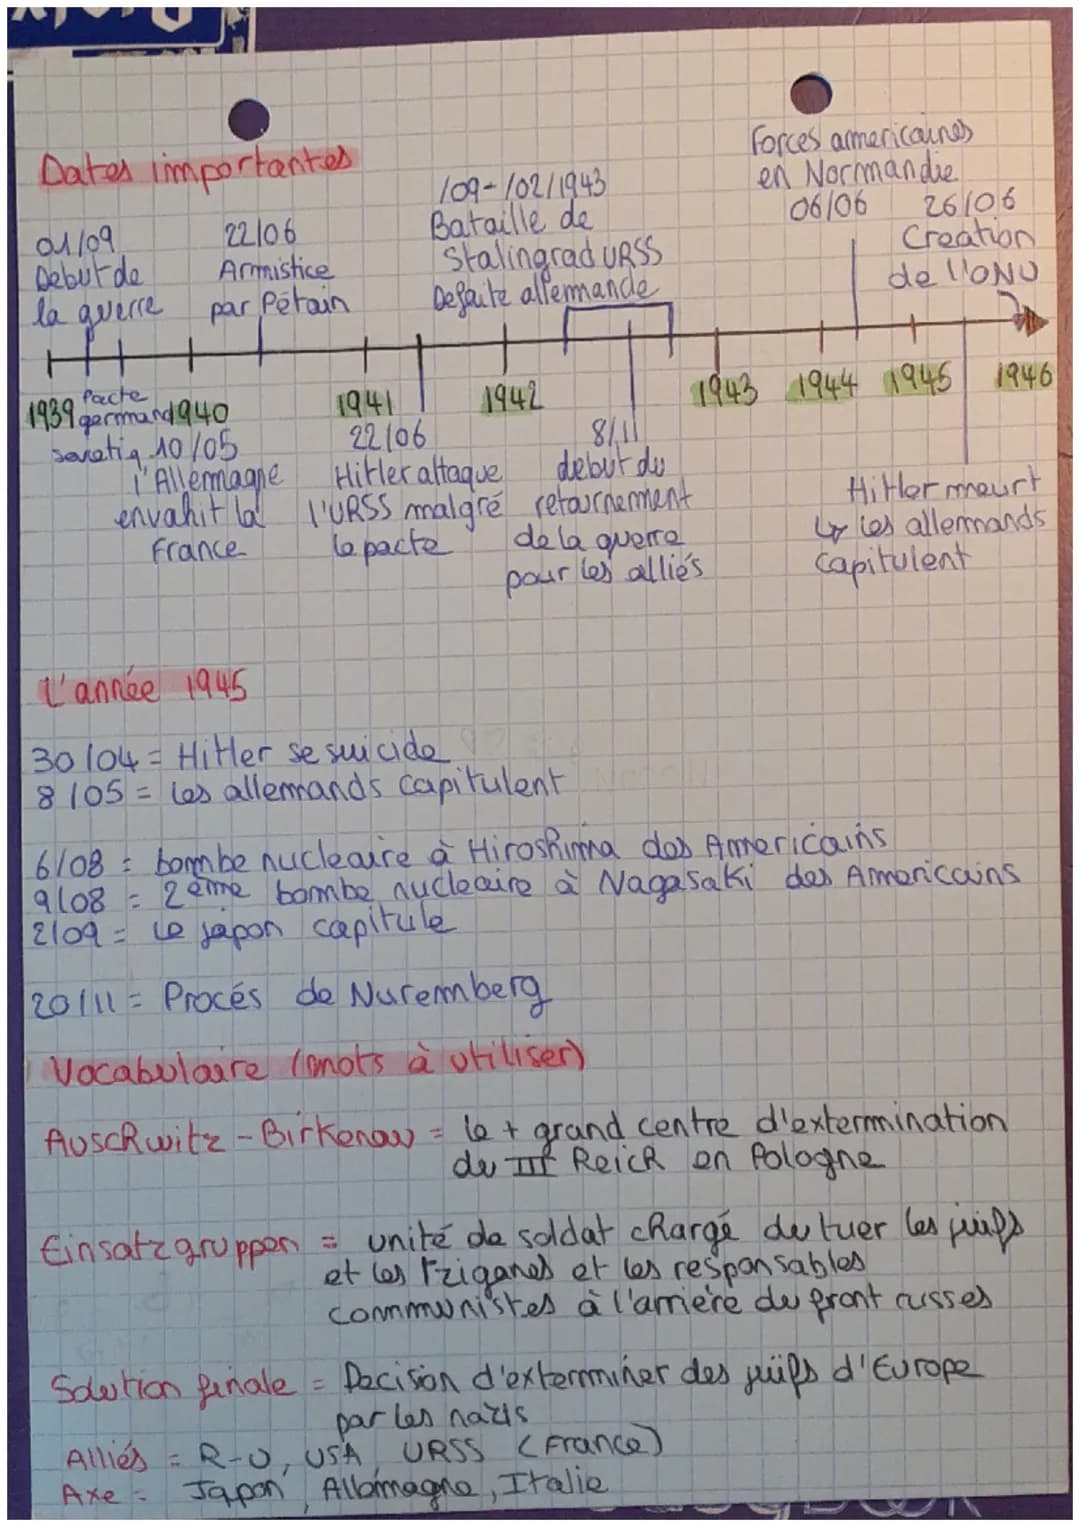 Dates importantes
Forces americaines
en Normandie
06/06
26/06
Creation
de l'ONU
/09-/02/1943
Bataille de
Stalingrad URSS
Defaite allemande
01/09
Debut de
la guerre
22/06
Armistice
par Pétain
1939 1940 1941 1942 1943 1944 1945 1946
Pacte
germano
10/05
l'Allemagne
envahit la
France
22/06
Hitler attaque
l'URSS malgré
le pacte
8/11
debut du
retournement
de la guerre
pour les alliés
Hitler meurt
↳ les allemands
capitulent
L'année 1945
30/04 = Hitler se suicide
8/05 = les allemands capitulent
6/08 = bombe nucleaire à Hiroshima des Americains
9/08 = 2ème bombe nucleaire à Nagasaki des Americains
2/09 = le japon capitule
20/11 = Procés de Nuremberg
Vocabulaire (mots à utiliser)
Auschwitz - Birkenau = le + grand centre d'extermination
du IIIe Reich en Pologne
Einsatzgruppen = unité de soldat chargé de tuer les juifs
et les Tziganes et les responsables
communistes à l'arrière du front russes
Solution finale = Decision d'exterminer des juifs d'Europe
par les nazis
Alliés = R-U, USA, URSS (France)
Axe = Japon, Allemagne, Italie